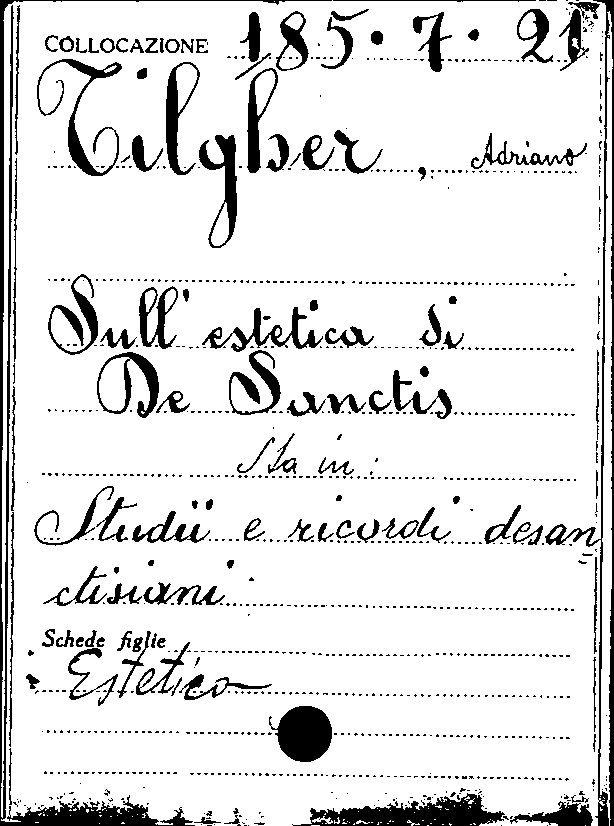 COLLOCAZIONE 185.7.21
Tilgher, Adriano
Sull'estetica di
De Sanctis
Sta in:
Studii e ricordi desan=
ctisiani.
Schede figlie
Estetica